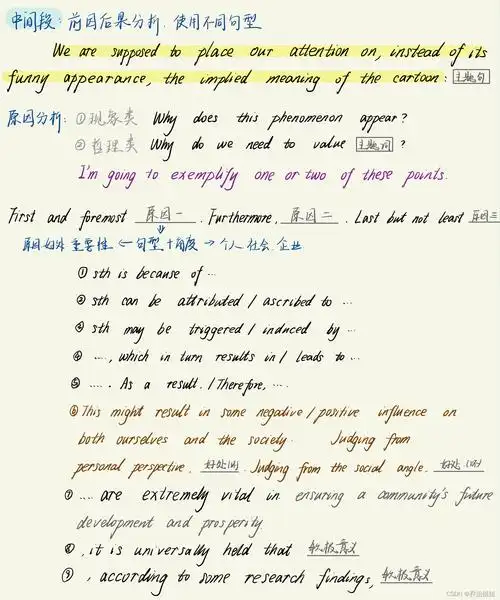 中间段: 前因后果分析. 使用不同句型
We are supposed to place our attention on, instead of its
funny appearance, the implied meaning of the cartoon: 主题句
原因分析: ①现象类 Why does this phenomenon appear?
②哲理类 Why do we need to value 主题词 ?
I'm going to exemplify one or two of these points.
First and foremost 原因一. Furthermore, 原因二. Last but not least 原因三
重要性 ← 句型+角度 → 个人 社会 企业
① sth is because of …
② sth can be attributed / ascribed to …
③ sth may be triggered / induced by …
④ …, which in turn results in / leads to …
⑤ …. As a result. / Therefore, ….
⑥ This might result in some negative / positive influence on
both ourselves and the society. Judging from
personal perspective, 好处(坏). Judging from the social angle. 好处(坏)
⑦ …. are extremely vital in ensuring a community's future
development and prosperity.
⑧, it is universally held that 积极意义
⑨, according to some research findings, 积极意义